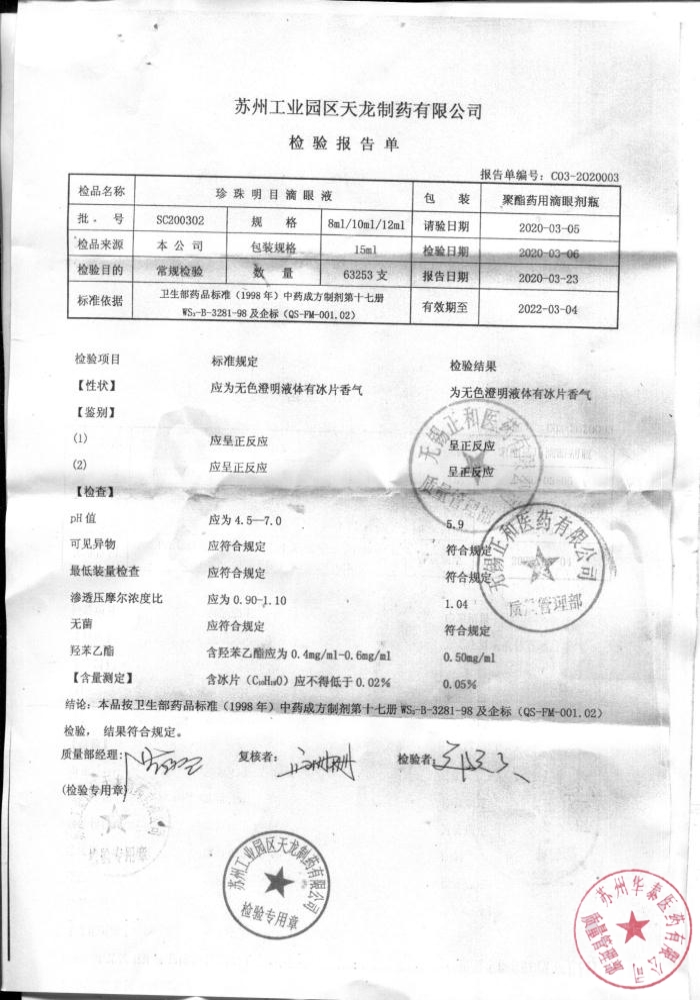 苏州工业园区天龙制药有限公司
检验报告单
报告单编号：C03-2020003
检品名称 珍珠明目滴眼液 包装 聚酯药用滴眼剂瓶
批号 SC200302 规格 8ml/10ml/12ml 请验日期 2020-03-05
检品来源 本公司 包装规格 15ml 检验日期 2020-03-06
检验目的 常规检验 数量 63253 支 报告日期 2020-03-23
标准依据 卫生部药品标准（1998 年）中药成方制剂第十七册 有效期至 2022-03-04
WS₃-B-3281-98 及企标（QS-FM-001.02）
检验项目 标准规定 检验结果
【性状】 应为无色澄明液体有冰片香气 为无色澄明液体有冰片香气
【鉴别】
(1) 应呈正反应 呈正反应
(2) 应呈正反应 呈正反应
【检查】
pH 值 应为 4.5—7.0 5.9
可见异物 应符合规定 符合规定
最低装量检查 应符合规定 符合规定
渗透压摩尔浓度比 应为 0.90-1.10 1.04
无菌 应符合规定 符合规定
羟苯乙酯 含羟苯乙酯应为 0.4mg/ml-0.6mg/ml 0.50mg/ml
【含量测定】 含冰片（C₁₀H₁₈O）应不得低于 0.02% 0.05%
结论：本品按卫生部药品标准（1998 年）中药成方制剂第十七册 WS₃-B-3281-98 及企标（QS-FM-001.02）
检验，结果符合规定。
质量部经理： 复核者： 检验者：
(检验专用章)
无锡正和医药有限公司
质量管理部
无锡正和医药有限公司
质量管理部
检验专用章
苏州工业园区天龙制药有限公司
检验专用章
苏州华泰医药有限公司
质量管理部